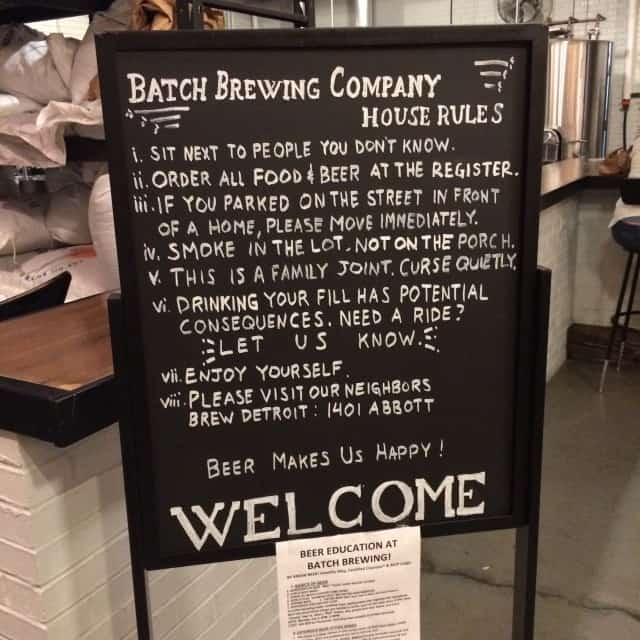 BATCH BREWING COMPANY
HOUSE RULES
i. SIT NEXT TO PEOPLE YOU DON'T KNOW.
ii. ORDER ALL FOOD & BEER AT THE REGISTER.
iii. IF YOU PARKED ON THE STREET IN FRONT
OF A HOME, PLEASE MOVE IMMEDIATELY.
iv. SMOKE IN THE LOT. NOT ON THE PORCH.
v. THIS IS A FAMILY JOINT. CURSE QUIETLY.
vi. DRINKING YOUR FILL HAS POTENTIAL
CONSEQUENCES. NEED A RIDE?
LET US KNOW.
vii. ENJOY YOURSELF.
viii. PLEASE VISIT OUR NEIGHBORS
BREW DETROIT: 1401 ABBOTT
BEER MAKES US HAPPY!
WELCOME
BEER EDUCATION AT
BATCH BREWING!